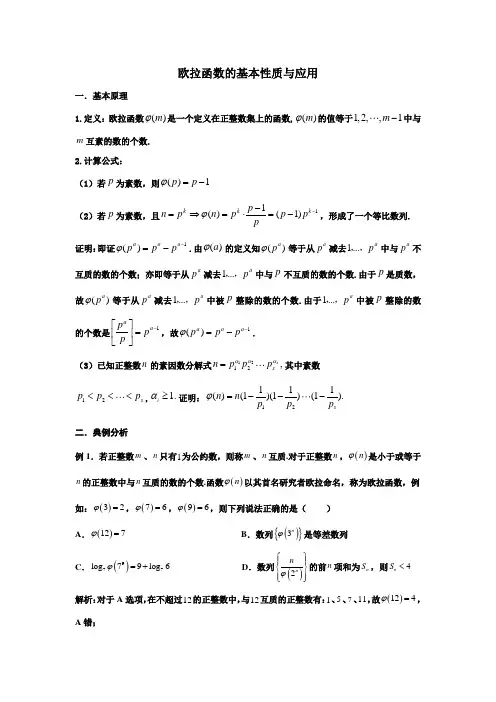 欧拉函数的基本性质与应用
一．基本原理
1.定义：欧拉函数φ(m)是一个定义在正整数集上的函数, φ(m)的值等于1,2,⋯,m−1中与
m互素的数的个数.
2.计算公式：
（1）若p为素数，则φ(p)=p−1
（2）若p为素数，且n=p^k⇒φ(n)=p^k·(p−1)/p=(p−1)p^{k−1}，形成了一个等比数列.
证明：即证φ(p^a)=p^a−p^{a−1}. 由φ(a)的定义知φ(p^a)等于从p^a减去1,...，p^a中与p^a不
互质的数的个数；亦即等于从p^a减去1,...，p^a中与p不互质的数的个数.由于p是质数，
故φ(p^a)等于从p^a减去1,...，p^a中被p整除的数的个数.由于1,...，p^a中被p整除的数
的个数是[p^a/p]=p^{a−1}，故φ(p^a)=p^a−p^{a−1}．
（3）已知正整数n的素因数分解式n=p_1^{α_1}p_2^{α_2}⋯p_s^{α_s},其中素数
p_1<p_2<…<p_s，α_i≥1.证明：φ(n)=n(1−1/p_1)(1−1/p_2)⋯(1−1/p_s).
二．典例分析
例1．若正整数m、n只有1为公约数，则称m、n互质.对于正整数n，φ(n)是小于或等于
n的正整数中与n互质的数的个数.函数φ(n)以其首名研究者欧拉命名，称为欧拉函数，例
如：φ(3)=2，φ(7)=6，φ(9)=6，则下列说法正确的是（ ）
A．φ(12)=7 B．数列{φ(3^n)}是等差数列
C．log φ(7^9)=9+log 6 D．数列{n/φ(2^n)}的前n项和为S_n，则S_n<4
解析：对于A选项,在不超过12的正整数中,与12互质的正整数有：1、5、7、11,故φ(12)=4，
A错；